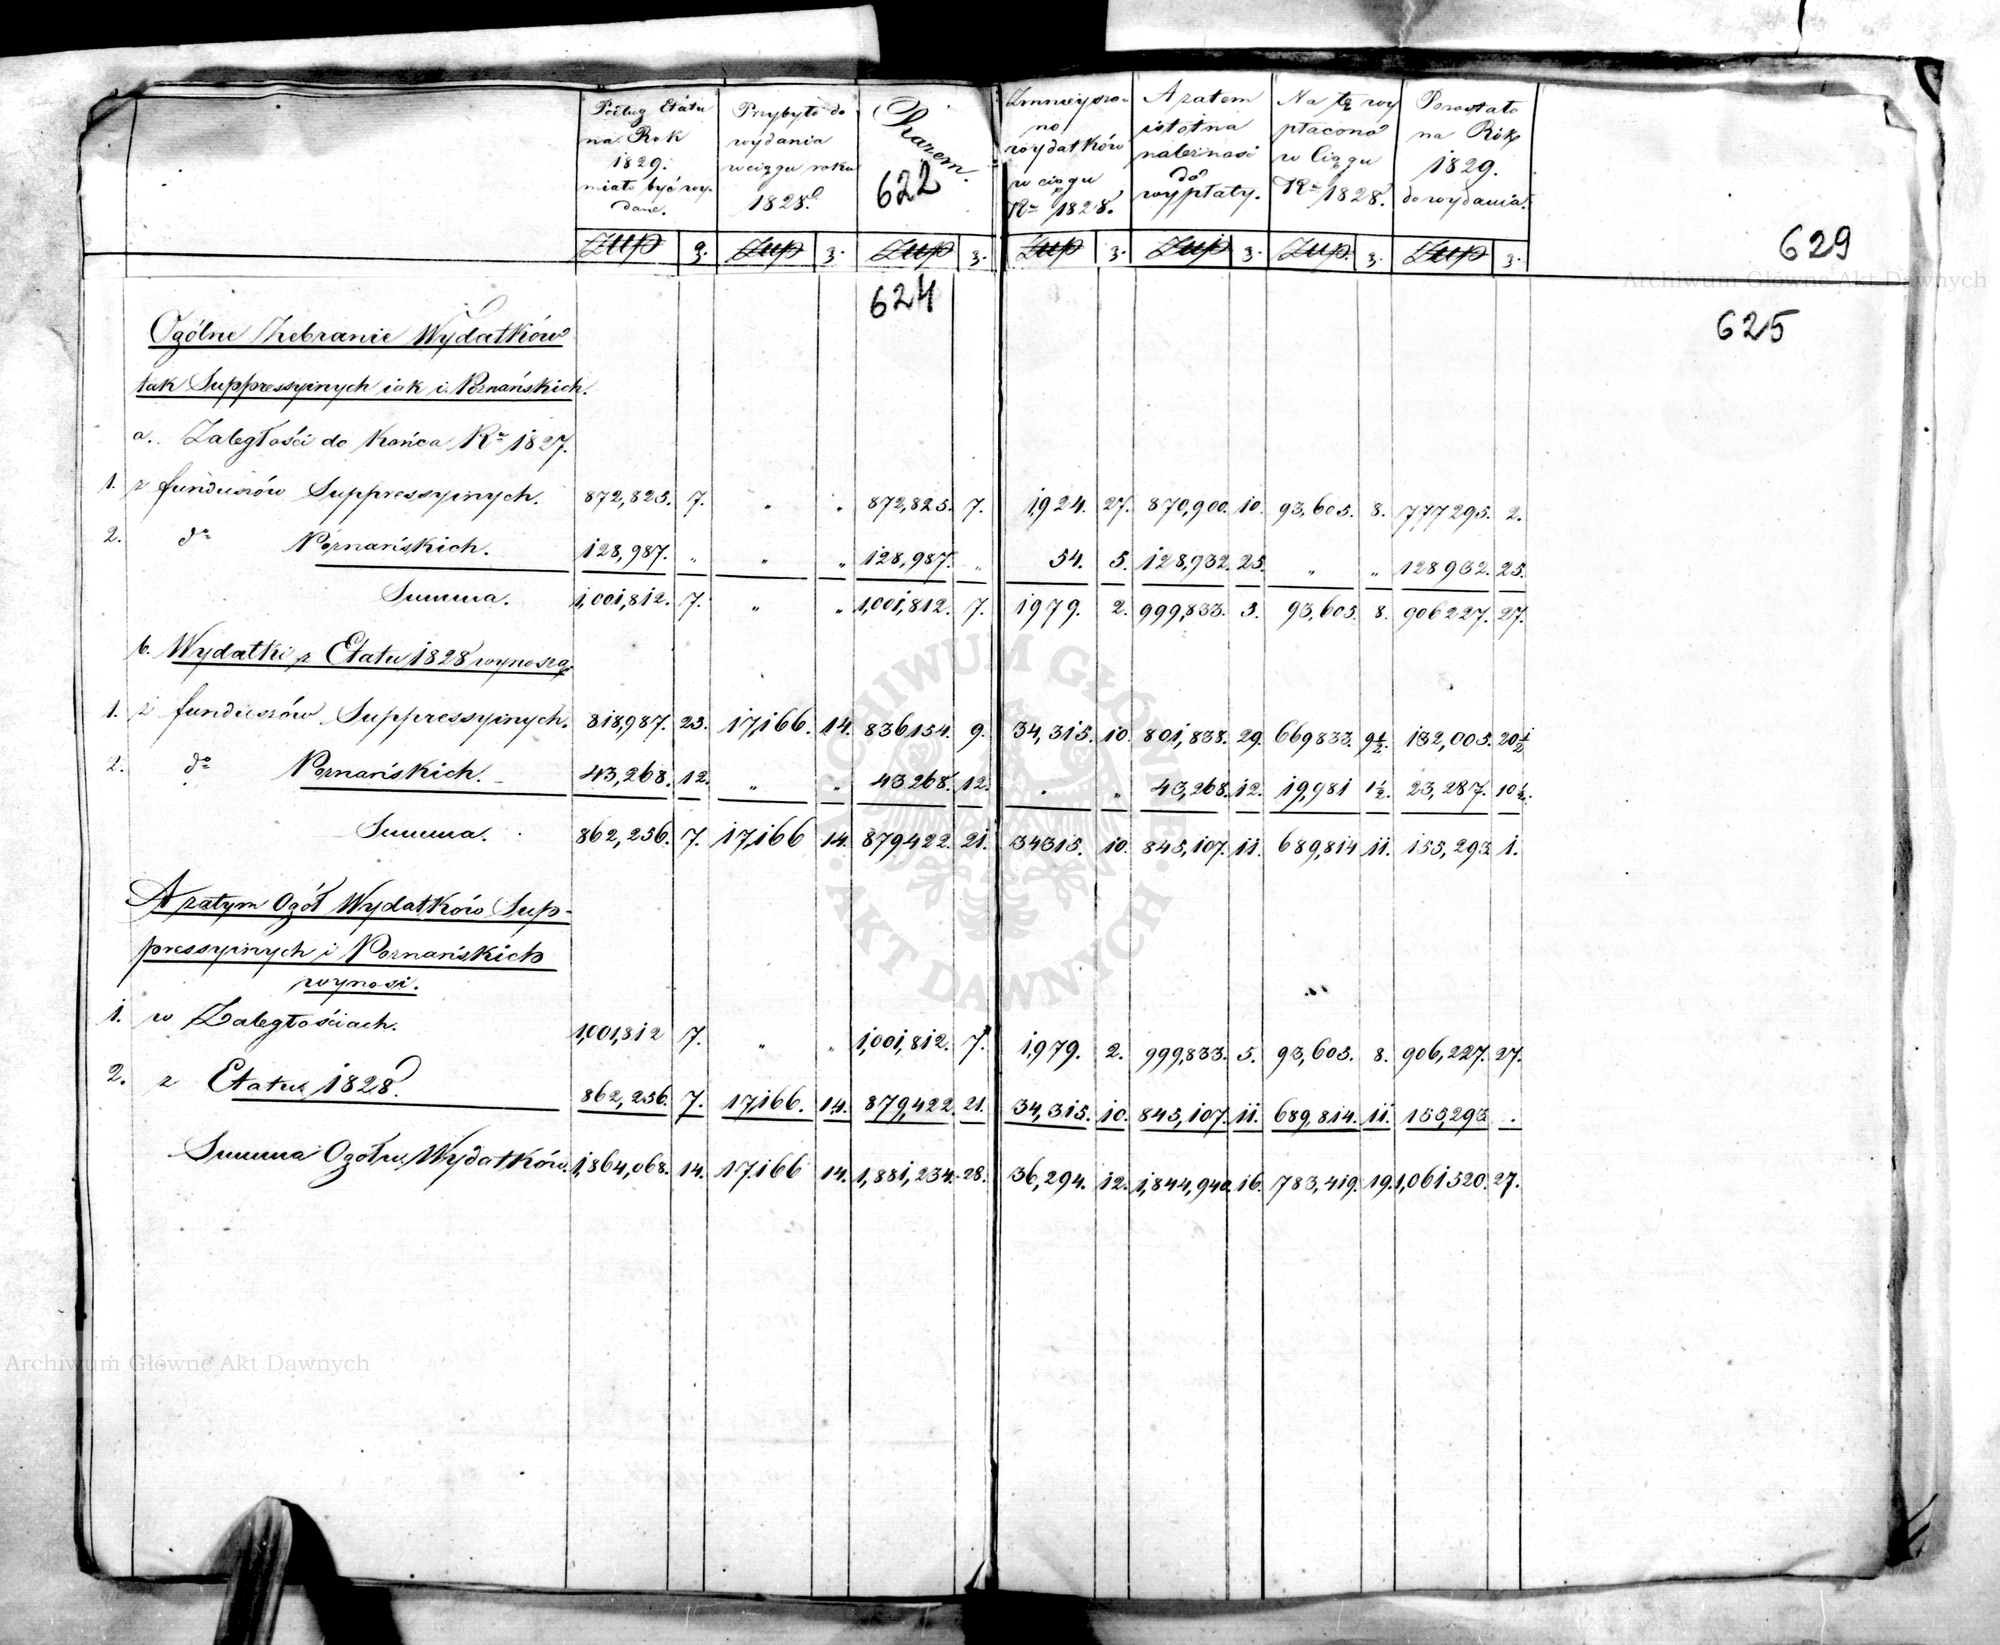 Podług Etatu
na Rok
1829.
miało być wy-
dane.
Przybyło do
wydania
w ciągu roku
1828.
Razem.
622
Zmnieyszo-
no
wydatków
w ciągu
Ru 1828.
A zatem
istotna
należność
do
wypłaty.
Na tę wy
płacono
w Ciągu
Ru 1828.
Pozostało
na Rok
1829.
do wydania.
629
Złłp g. Złłp g. Złłp g. Złłp g. Złłp g. Złłp g. Złłp g.
624
625
Ogólne Zebranie Wydatków
tak Suppressyinych iak i Poznańskich.
a. Zaległości do końca Ru 1827.
1. z funduszów Suppressyinych. 872,825. 7. " " 872,825. 7. 1,924. 27. 870,900. 10. 93,605. 8. 777295. 2.
2. do Poznańskich. 128,987. " " " 128,987. " 54. 5. 128,932. 25. " " 128932. 25.
Summa. 1,001,812. 7. " " 1,001,812. 7. 1979. 2. 999,833. 5. 93,605. 8. 906227. 27.
b. Wydatki z Etatu 1828 wynoszą
1. z funduszów Suppressyinych. 818,987. 25. 17,166. 14. 836154. 9. 34,315. 10. 801,838. 29. 669833. 9½. 132,005. 20½
2. do Poznańskich. 43,268. 12. " " 43268. 12. " " 43,268. 12. 19,981 1½. 23,287. 10½.
Summa. 862,256. 7. 17,166 14. 879422. 21. 34315. 10. 845,107. 11. 689,814 11. 155,293 1.
A zatym Ogół Wydatków Sup-
pressyinych i Poznańskich
wynosi.
1. w Zaległościach. 1,001,812 7. " " 1,001,812. 7. 1,979. 2. 999,833. 5. 93,605. 8. 906,227. 27.
2. z Etatu 1828. 862,256. 7. 17,166. 14. 879,422. 21. 34,315. 10. 845,107. 11. 689,814. 11. 155,293 .
Summa Ogółu Wydatków. 1,864,068. 14. 17.166 14. 1,881,234. 28. 36,294. 12. 1,844,940. 16. 783,419. 19. 1,061520. 27.
Archiwum Główne Akt Dawnych
ARCHIWUM GŁÓWNE
AKT DAWNYCH
Archiwum Główne Akt Dawnych